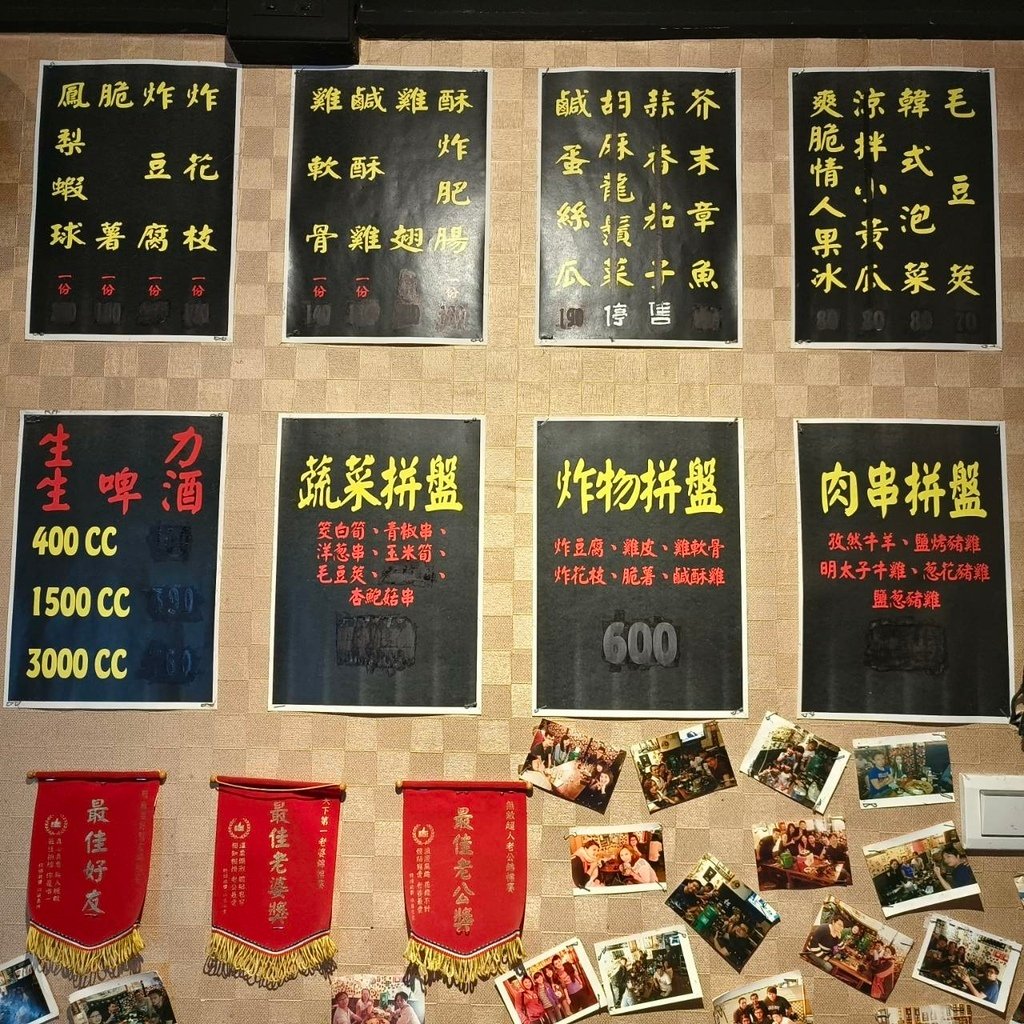 炸花枝 一份
炸豆腐 一份
脆薯 一份
鳳梨蝦球 一份
酥炸肥腸 一份
雞翅
鹹酥雞 一份
雞軟骨 一份
芥末章魚
蒜香茄子 售
胡麻龍鬚菜 停
鹹蛋絲瓜 190
毛豆莢 70
韓式泡菜 80
涼拌小黃瓜 80
爽脆情人果冰 80
生力
生啤酒
400 CC
1500 CC 390
3000 CC
蔬菜拼盤
筊白筍、青椒串、
洋蔥串、玉米筍、
毛豆莢、
杏鮑菇串
炸物拼盤
炸豆腐、雞皮、雞軟骨
炸花枝、脆薯、鹹酥雞
600
肉串拼盤
孜然牛羊、鹽烤豬雞
明太子牛雞、蔥花豬雞
鹽蔥豬雞
最佳好友
天下第一老婆錦標賽
最佳老婆獎
無敵超人老公錦標賽
最佳老公獎